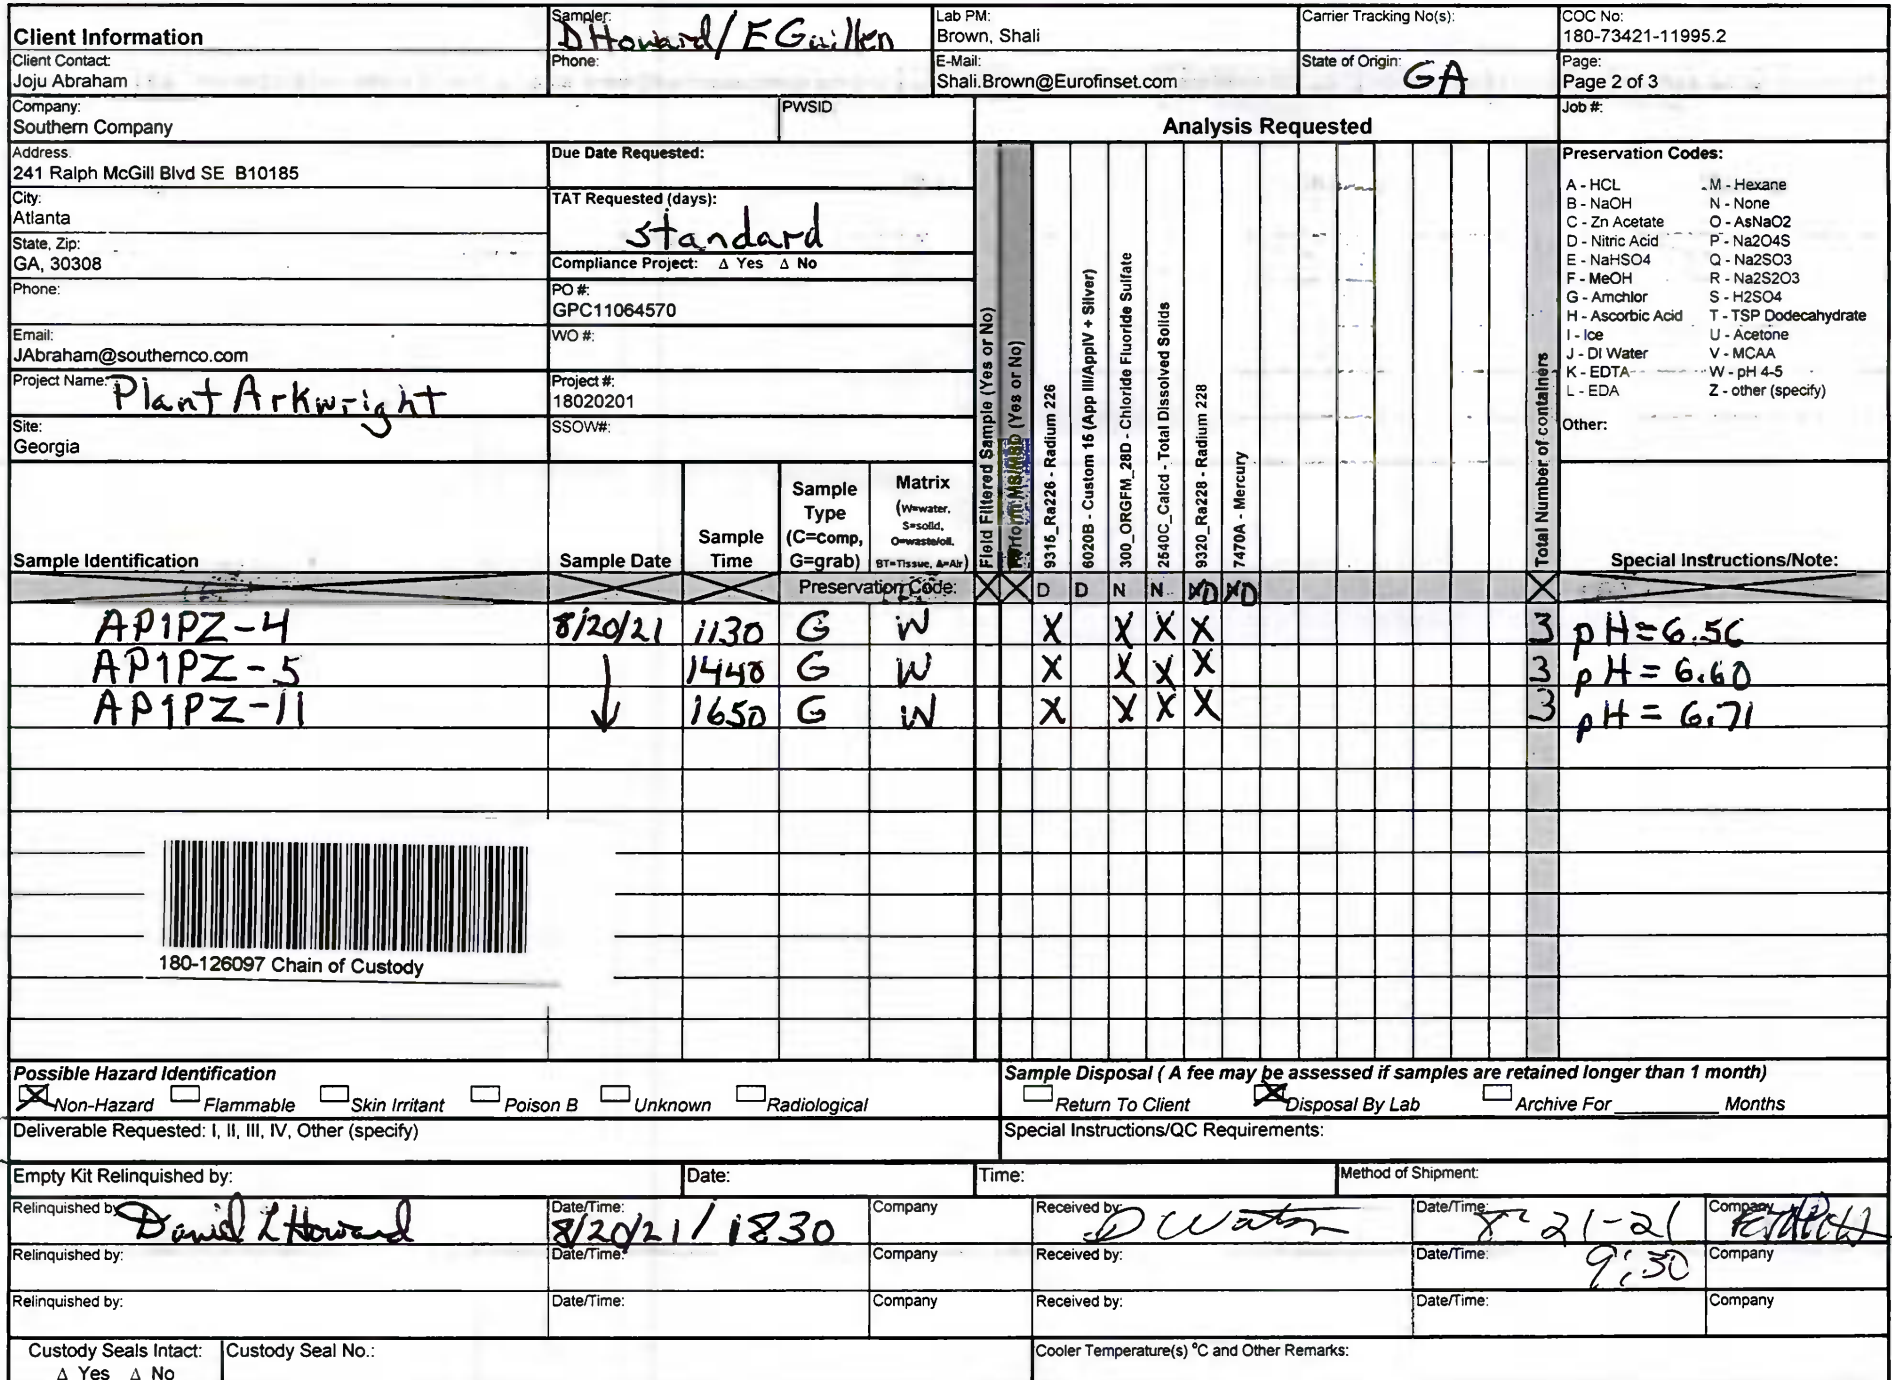 Client Information
Sampler:
D Howard / E Guillen
Lab PM:
Brown, Shali
Carrier Tracking No(s):
COC No:
180-73421-11995.2
Client Contact:
Joju Abraham
Phone:
E-Mail:
Shali.Brown@Eurofinset.com
State of Origin: GA
Page:
Page 2 of 3
Company:
Southern Company
PWSID
Analysis Requested
Job #:
Address.
241 Ralph McGill Blvd SE B10185
Due Date Requested:
City:
Atlanta
TAT Requested (days):
standard
State, Zip:
GA, 30308
Compliance Project: Δ Yes Δ No
Phone:
PO #:
GPC11064570
Email:
JAbraham@southernco.com
WO #:
Project Name: Plant Arkwright
Project #:
18020201
Site:
Georgia
SSOW#:
Preservation Codes:
A - HCL M - Hexane
B - NaOH N - None
C - Zn Acetate O - AsNaO2
D - Nitric Acid P - Na2O4S
E - NaHSO4 Q - Na2SO3
F - MeOH R - Na2S2O3
G - Amchlor S - H2SO4
H - Ascorbic Acid T - TSP Dodecahydrate
I - Ice U - Acetone
J - DI Water V - MCAA
K - EDTA W - pH 4-5
L - EDA Z - other (specify)
Other:
Sample Identification
Sample Date
Sample Time
Sample Type (C=comp, G=grab)
Matrix (W=water, S=solid, O=waste/oil, BT=Tissue, A=Air)
Field Filtered Sample (Yes or No)
Perform MS/MSD (Yes or No)
9315_Ra226 - Radium 226
6020B - Custom 15 (App III/AppIV + Silver)
300_ORGFM_28D - Chloride Fluoride Sulfate
2540C_Calcd - Total Dissolved Solids
9320_Ra228 - Radium 228
7470A - Mercury
Total Number of containers
Special Instructions/Note:
Preservation Code: X X D D N N D D X
AP1PZ-4 8/20/21 1130 G W X X X X 3 pH=6.56
AP1PZ-5 ↓ 1440 G W X X X X 3 pH = 6.60
AP1PZ-11 1650 G W X X X X 3 pH = 6.71
180-126097 Chain of Custody
Possible Hazard Identification
Non-Hazard Flammable Skin Irritant Poison B Unknown Radiological
Sample Disposal ( A fee may be assessed if samples are retained longer than 1 month)
Return To Client Disposal By Lab Archive For ________ Months
Deliverable Requested: I, II, III, IV, Other (specify)
Special Instructions/QC Requirements:
Empty Kit Relinquished by:
Date:
Time:
Method of Shipment:
Relinquished by: Daniel L Howard
Date/Time:
8/20/21 / 1830
Company
Received by: D Watson
Date/Time: 8-21-21
9:30
Company
Relinquished by:
Date/Time:
Company
Received by:
Date/Time:
Company
Relinquished by:
Date/Time:
Company
Received by:
Date/Time:
Company
Custody Seals Intact:
Δ Yes Δ No
Custody Seal No.:
Cooler Temperature(s) °C and Other Remarks: